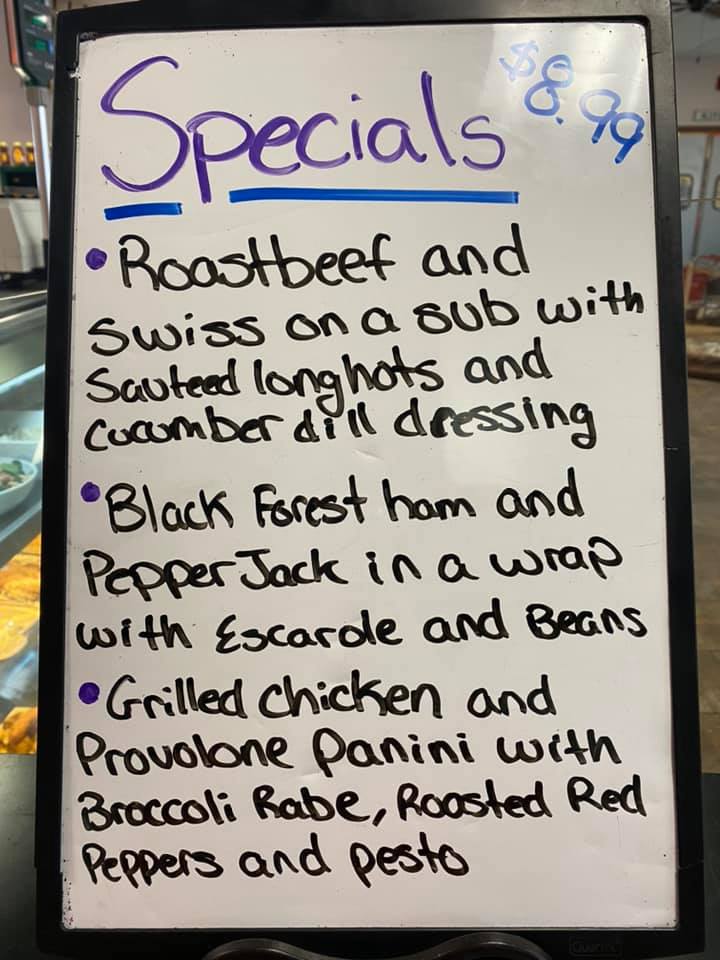 $8.99
Specials
• Roastbeef and
swiss on a sub with
Sauteed longhots and
cucumber dill dressing
• Black Forest ham and
Pepper Jack in a wrap
with Escarole and Beans
• Grilled chicken and
Provolone Panini with
Broccoli Rabe, Roasted Red
Peppers and pesto